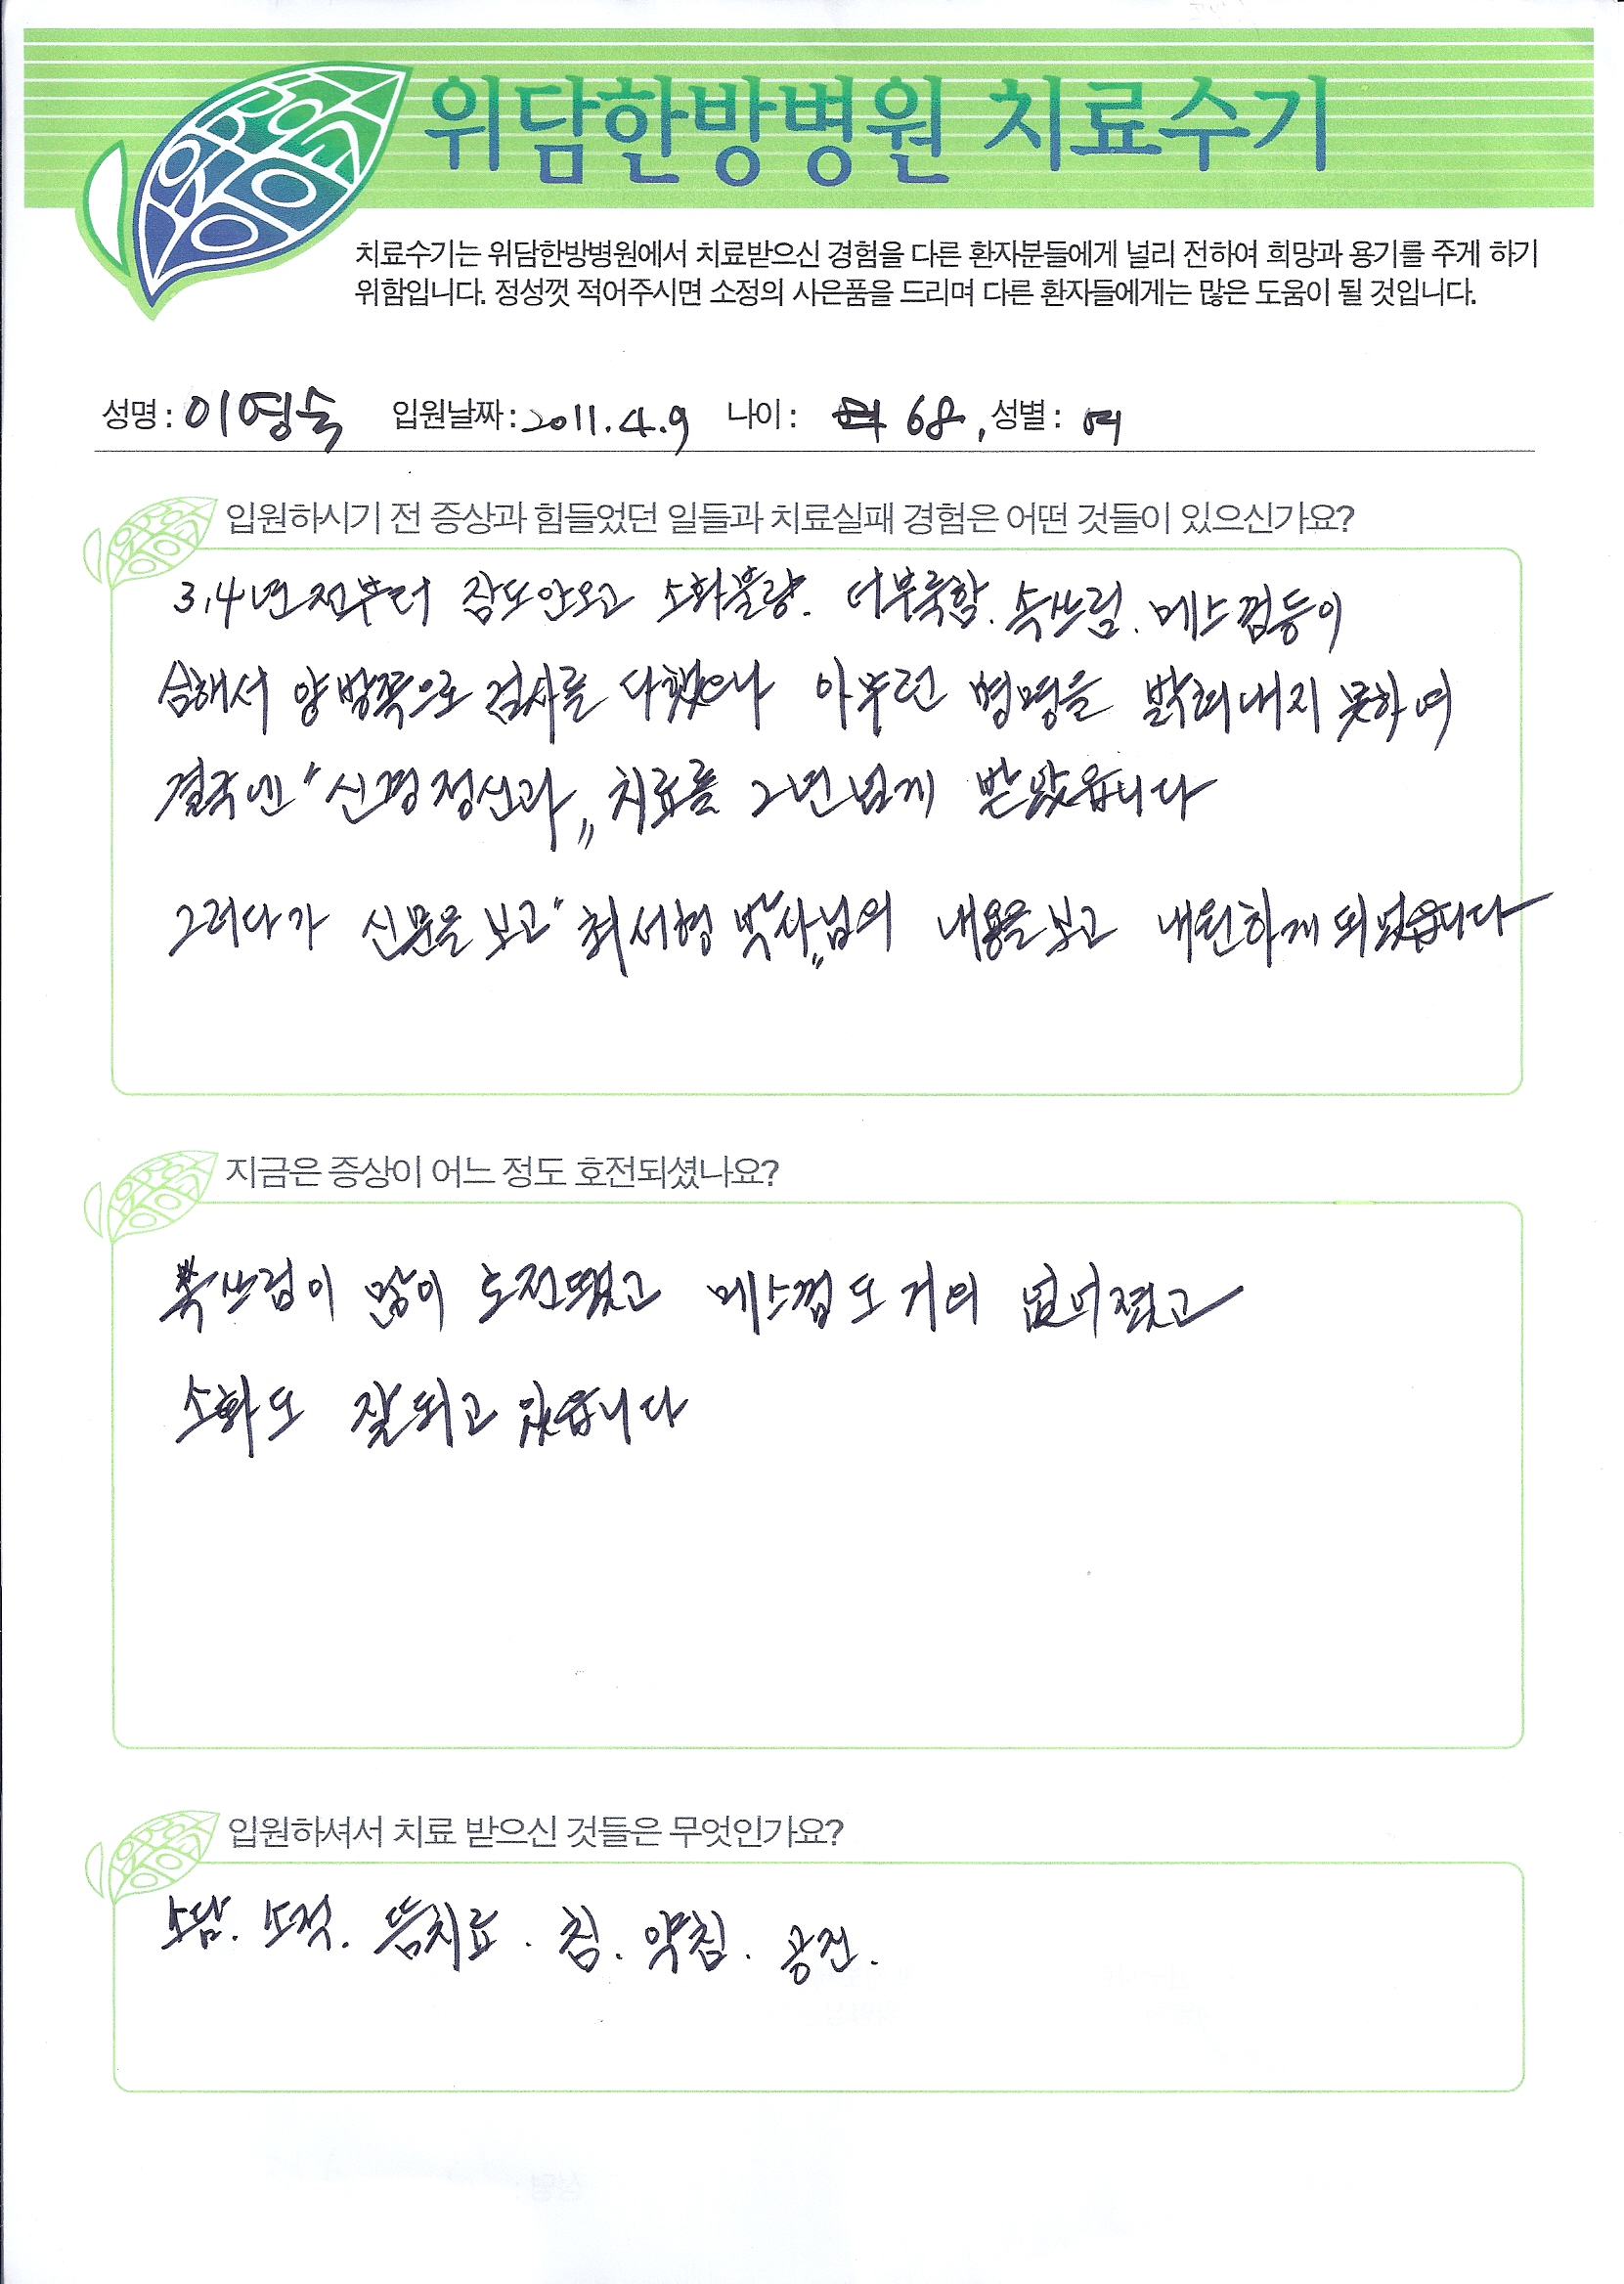 위담한방병원 치료수기
치료수기는 위담한방병원에서 치료받으신 경험을 다른 환자분들에게 널리 전하여 희망과 용기를 주게 하기
위함입니다. 정성껏 적어주시면 소정의 사은품을 드리며 다른 환자들에게는 많은 도움이 될 것입니다.
성명 : 이영숙 입원날짜 : 2011.4.9 나이 : 68. 성별 : 여
입원하시기 전 증상과 힘들었던 일들과 치료실패 경험은 어떤 것들이 있으신가요?
3,4년전부터 잠도안오고 소화불량. 더부룩함. 속쓰림. 메스껌등이
심해서 양방쪽으로 검사를 다했으나 아무런 병명을 밝혀내지 못하여
결국엔 "신경정신과" 치료를 2년넘게 받았읍니다
그러다가 신문을 보고 "최서형 박사"님의 내용을 보고 내원하게 되었읍니다
지금은 증상이 어느 정도 호전되셨나요?
속쓰림이 많이 호전됬고 메스껌도 거의 없어졌고
소화도 잘되고 있읍니다
입원하셔서 치료 받으신 것들은 무엇인가요?
소담. 소적. 뜸치료. 침. 약침. 공진.